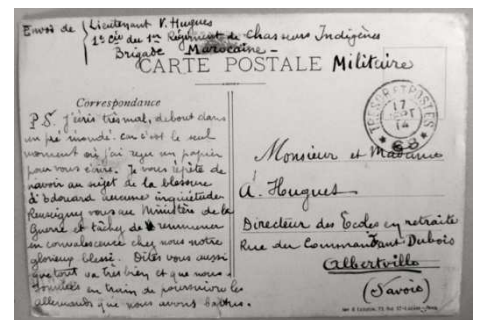 Envoi de Lieutenant V. Hugues
1e Cie du 1er Régiment de Chasseurs Indigènes
Brigade Marocaine -
CARTE POSTALE Militaire
Correspondance
P.S. J'écris très mal, debout dans
un pré inondé. Car c'est le seul
moment où j'ai reçu un papier
pour vous écrire. Je vous répète de
n'avoir au sujet de la blessure
d'Edouard aucune inquiétude.
Renseignez vous au Ministère de la
Guerre et tâchez de remmener
en convalescence chez nous notre
glorieux blessé. Dites vous aussi
que tout va très bien et que nous
sommes en train de poursuivre les
allemands que nous avons battus.
TRESOR ET POSTES
17
SEPT
14
Monsieur et Madame
A. Hugues
Directeur des Ecoles en retraite
Rue du Commandant Dubois
Albertville
(Savoie)